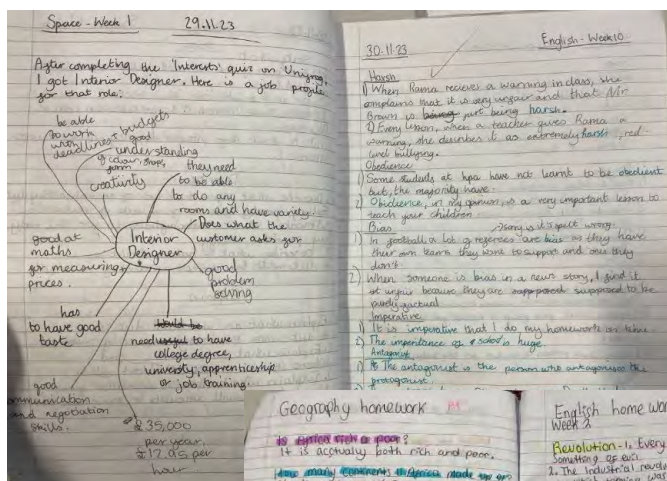 Space - Week 1
29.11.23
After completing the 'Interests' quiz on Unifrog,
I got Interior Designer. Here is a job profile
for that role:
be able
to work
with
deadlines + budgets
good
understanding
of colour, shape,
creativity
they need
to be able
to do any
rooms and have variety
Does what the
customer asks for
Interior
Designer
good at
maths
for measuring +
prices.
good
problem
solving
has
to have good
taste
need to have
college degree,
university, apprenticeship
or job training
good
and negotiation
skills.
£35,000
per year.
£17.95 per
hour
30.11.23
English - Week 10
Harsh
1) When Rama reciever a warning in class, she
complains that it is very unfair and that Mr
Brown is just being harsh.
2) Every lesson, when a teacher gives Rama a
warning, she describes it as extremely harsh, red
and bullying.
Obedience
1) Some students at hpa have not learnt to be obedient
but, the majority have.
2) Obidience, in my opinion, is a very important lesson to
teach your children.
Bias
1) In football a lot of referees are bias as they have
their own team they want to support and one they
don't
2) When someone is bias in a news story, I find it
unfair because they are supposed to be
purely factual
Imperative
1) It is imperative that I do my homework on time
2) The imperitance of school is huge.
Antagonist
1) The antagonist is the person who antagonises the
protagonist.
Geography homework
Is Africa rich or poor?
It is acctually both rich and poor.
How many continents is Africa made up
English home wor
Week 2
Revolution - 1. Every
Something of evil.
2. The Industrial revolu